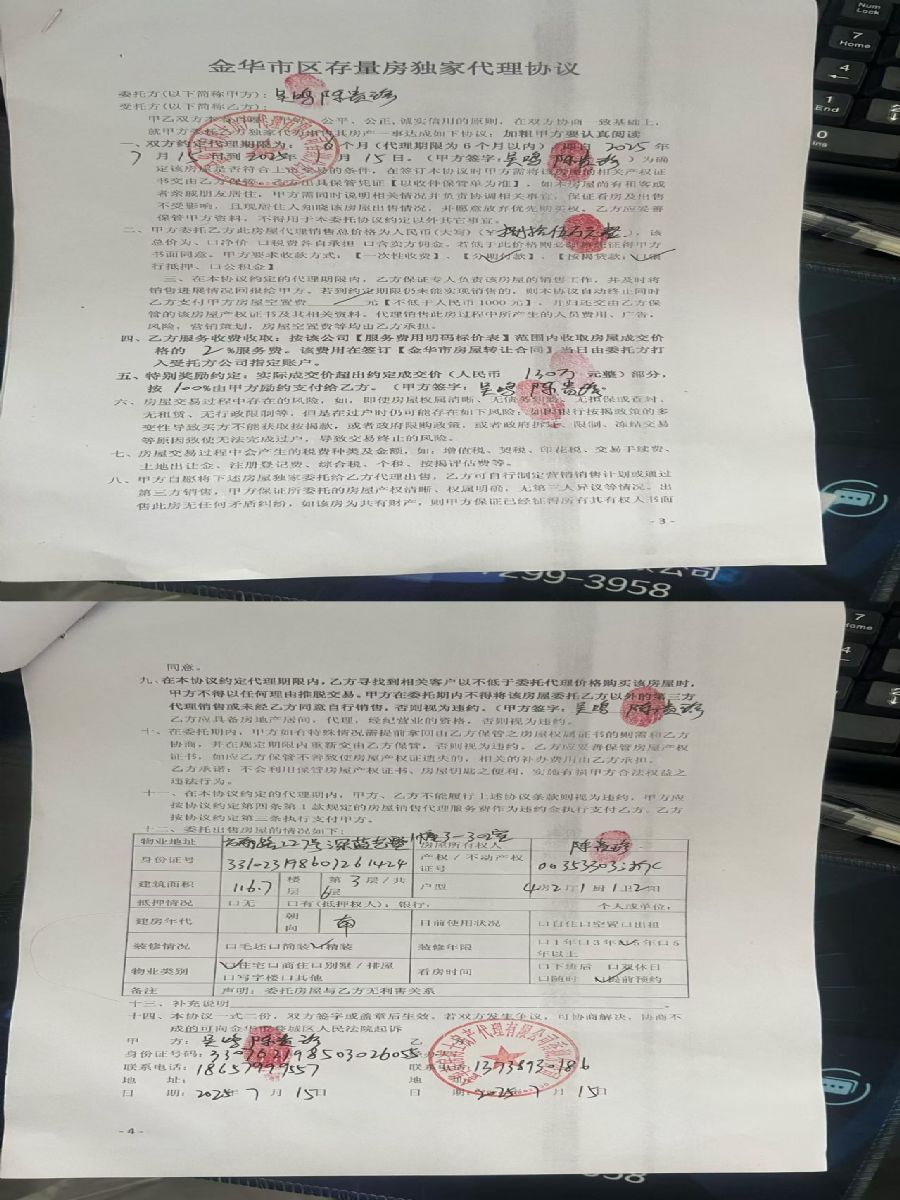 金华市区存量房独家代理协议
委托方(以下简称甲方):吴鸣 陈
受托方(以下简称乙方):
甲乙双方本着 公平、公正、诚实信用的原则,在双方协商一致基础上,
就甲方委托乙方独家代为出售其房产一事达成如下协议:加粗甲方要认真阅读
一、双方约定代理期限为: 6个月(代理期限为6个月以内),即自2025年
7月15日到2025年 月15日。(甲方签字:吴鸣 陈 )为确
定该房屋是否符合上市交易的条件,在签订本协议时甲方需将该房屋的相关产权证
书交由乙方保管。乙方出具保管凭证【以收件保管单为准】,如本房屋尚有租客或
者亲戚朋友居住,甲方需同时说明相关情况并负责协调相关事宜,保证看房及出售
不受影响,且现居住人知晓该房屋出售情况,并愿意放弃优先购买权。乙方应妥善
保管甲方资料,不得用于本委托协议约定以外其它事宜。
二、甲方委托乙方此房屋代理销售总价格为人民币(大写)(¥捌拾伍万元整),该
总价为、口净价 口税费各自承担 口含卖方佣金。若低于此价格则必须事先征得甲方
书面同意。甲方要求收款方式:【一次性收费】、【分期付款】、【按揭贷款:口银
行抵押、口公积金】
三、在本协议约定的代理期限内,乙方保证专人负责该房屋的销售工作,并及时将
销售进展情况回报给甲方。若到约定期限仍未能实现销售的,则本协议自动终止同时
乙方支付甲方房屋空置费 元【不低于人民币1000元】,并归还交由乙方保
管的该房屋产权证书及其相关资料。代理销售此房过程中所产生的人员费用、广告,
风险,营销策划,房屋空置费等均由乙方承担。
四、乙方服务收费收取:按该公司【服务费用明码标价表】范围内收取房屋成交价
格的 2 %服务费。该费用在签订【金华市房屋转让合同】当日由委托方打
入受托方公司指定账户。
五、特别奖励约定:实际成交价超出约定成交价(人民币 130万 元整)部分,
按 100%由甲方励约支付给乙方。(甲方签字:吴鸣 陈
六、房屋交易过程中存在的风险,如,即使房屋权属清晰、无债务纠葛、无担保或查封、
无租赁、无行政限制等,但是在过户时仍可能存在如下风险:如因银行按揭政策的多
变性导致买方不能获取按揭款,或者政府限购政策,或者政府拆迁、限制、冻结交易
等原因致使无法完成过户,导致交易终止的风险。
七、房屋交易过程中会产生的税费种类及金额,如:增值税、契税、印花税、交易手续费、
土地出让金、注册登记费、综合税、个税、按揭评估费等。
八、甲方自愿将下述房屋独家委托给乙方代理出售,乙方可自行制定营销销售计划或通过
第三方销售,甲方保证所委托的房屋产权清晰、权属明确,无第三人异议等情况。出
售此房无任何矛盾纠纷,如该房为共有财产,则甲方保证已经征得所有其有权人书面
- 3 -
7299-3958
同意。
九、在本协议约定代理期限内,乙方寻找到相关客户以不低于委托代理价格购买该房屋时,
甲方不得以任何理由推脱交易。甲方在委托期内不得将该房屋委托乙方以外的第三方
代理销售或未经乙方同意自行销售,否则视为违约。(甲方签字:吴鸣 陈
乙方应具备房地产居间、代理、经纪营业的资格,否则视为违约。
十、在委托期内,甲方如有特殊情况需提前拿回由乙方保管之房屋权属证书的则需和乙方
协商,并在规定期限内重新交由乙方保管,否则视为违约。乙方应妥善保管房屋产权
证书,如应乙方保管不善致使房屋产权证遗失的,相关的补办费用由乙方承担。
乙方承诺:不会利用保管房屋产权证书、房屋钥匙之便利,实施有损甲方合法权益之
违法行为。
十一、在本协议约定的代理期内,甲方、乙方不能履行上述协议条款则视为违约,甲方应
按协议约定第四条第1款规定的房屋销售代理服务费作为违约金执行支付乙方。乙方
按协议约定第三条执行支付甲方。
十二、委托出售房屋的情况如下:
物业地址 路227号深蓝 1幢3-302室 房屋所有权人 陈
身份证号 331023198607261424 产权/不动产权证号 00353303
建筑面积 116.7 楼层 第3层/共6层 户型 4房2厅1厨1卫2阳
抵押情况 口无 口有(抵押权人):银行: 个人或单位:
建房年代 朝向 南 目前使用状况 口自住口空置口出租
装修情况 口毛坯口简装口精装 装修年限 口1年口3年口5年口5年以上
物业类别 口住宅口商住口别墅/排屋 口写字楼口其他 看房时间 口下班后 口双休日 口随时 口提前预约
备注 声明:委托房屋与乙方无利害关系
十三、补充说明
十四、本协议一式二份,双方签字或盖章后生效。若双方发生争议,可协商解决,协商不
成的可向金华市婺城区人民法院起诉
甲 方:吴鸣 陈 乙
身份证号码:330702198503026055
联系电话:18657999557 联系电话:13738930386
地 址: 地 址
日 期:2025年7月15日 日 期:2025年7月15日
- 4 -